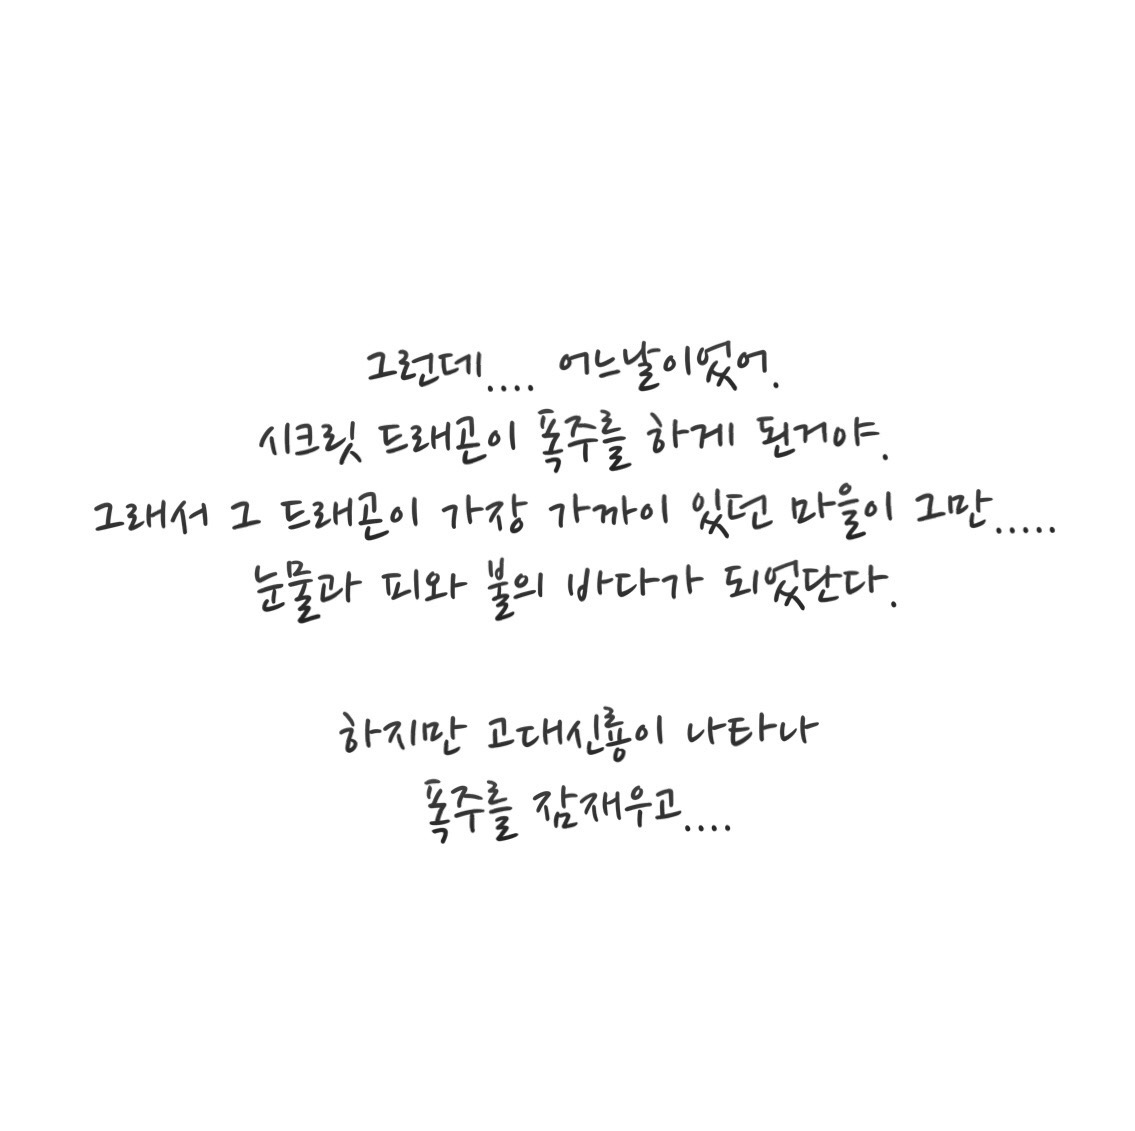 그런데.... 어느날이었어.
시크릿 드래곤이 폭주를 하게 된거야.
그래서 그 드래곤이 가장 가까이 있던 마을이 그만.....
눈물과 피와 불의 바다가 되었단다.
하지만 고대신룡이 나타나
폭주를 잠재우고....